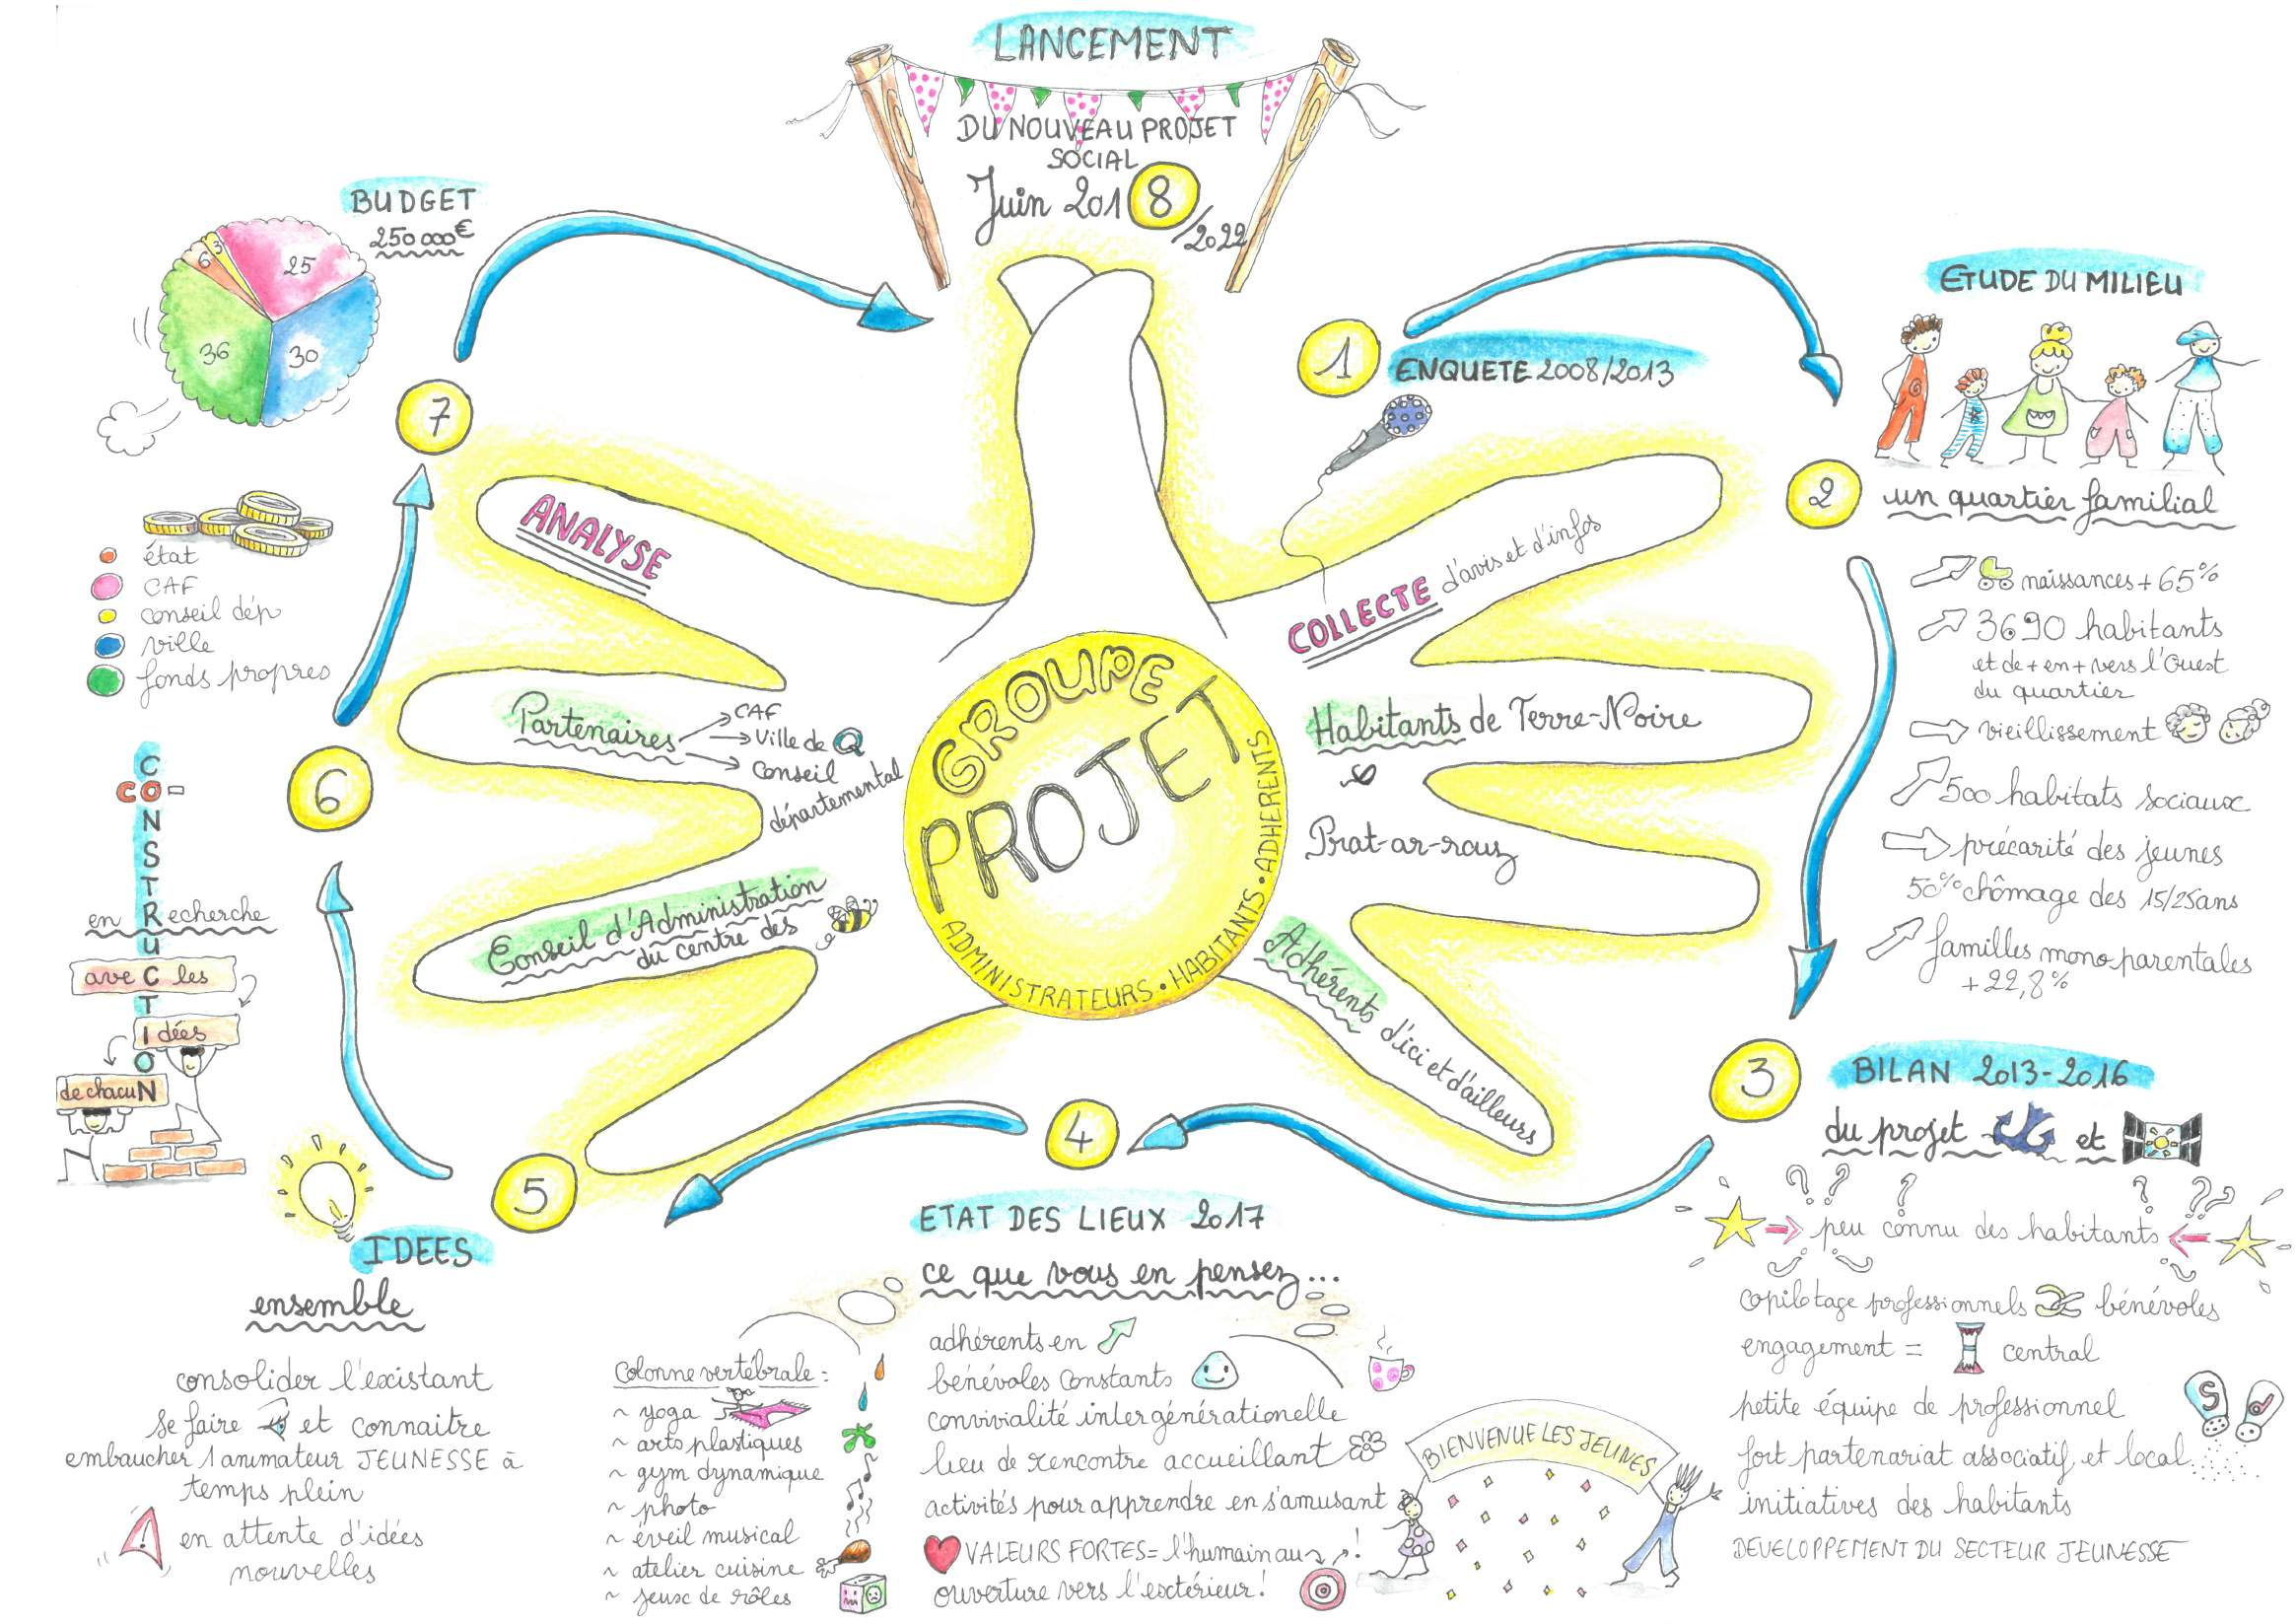 LANCEMENT
DU NOUVEAU PROJET
SOCIAL
Juin 2018/2022
BUDGET
250 000€
3
6
25
36
30
état
CAF
conseil dép
ville
fonds propres
7
1
ENQUETE 2008/2013
ETUDE DU MILIEU
2
un quartier familial
naissances + 65%
3690 habitants
et de + en + vers l'Ouest
du quartier
vieillissement
500 habitats sociaux
précarité des jeunes
50% chômage des 15/25ans
familles monoparentales
+ 22,8%
ANALYSE
COLLECTE d'avis et d'infos
Partenaires
CAF
Ville de Q
Conseil
départemental
Habitants de Terre-Noire
Prat-ar-rouz
Conseil d'Administration
du centre des
Adhérents d'ici et d'ailleurs
GROUPE
PROJET
ADMINISTRATEURS • HABITANTS • ADHERENTS
6
CO-
CONSTRUCTION
en Recherche
avec les
Idées
de chacuN
3
BILAN 2013-2016
du projet et
peu connu des habitants
? ? ? ? ? ?
copilotage professionnels bénévoles
engagement = central
petite équipe de professionnel
S
fort partenariat associatif et local
initiatives des habitants
DEVELOPPEMENT DU SECTEUR JEUNESSE
4
ETAT DES LIEUX 2017
ce que vous en pensez...
adhérents en
bénévoles constants
convivialité intergénérationelle
lieu de rencontre accueillant
activités pour apprendre en s'amusant
VALEURS FORTES = l'humain au !
ouverture vers l'extérieur !
BIENVENUE LES JEUNES
colonne vertébrale :
~ yoga
~ arts plastiques
~ gym dynamique
~ photo
~ éveil musical
~ atelier cuisine
~ jeux de rôles
5
IDEES
ensemble
consolider l'existant
se faire et connaitre
embaucher 1 animateur JEUNESSE à
temps plein
! en attente d'idées
nouvelles